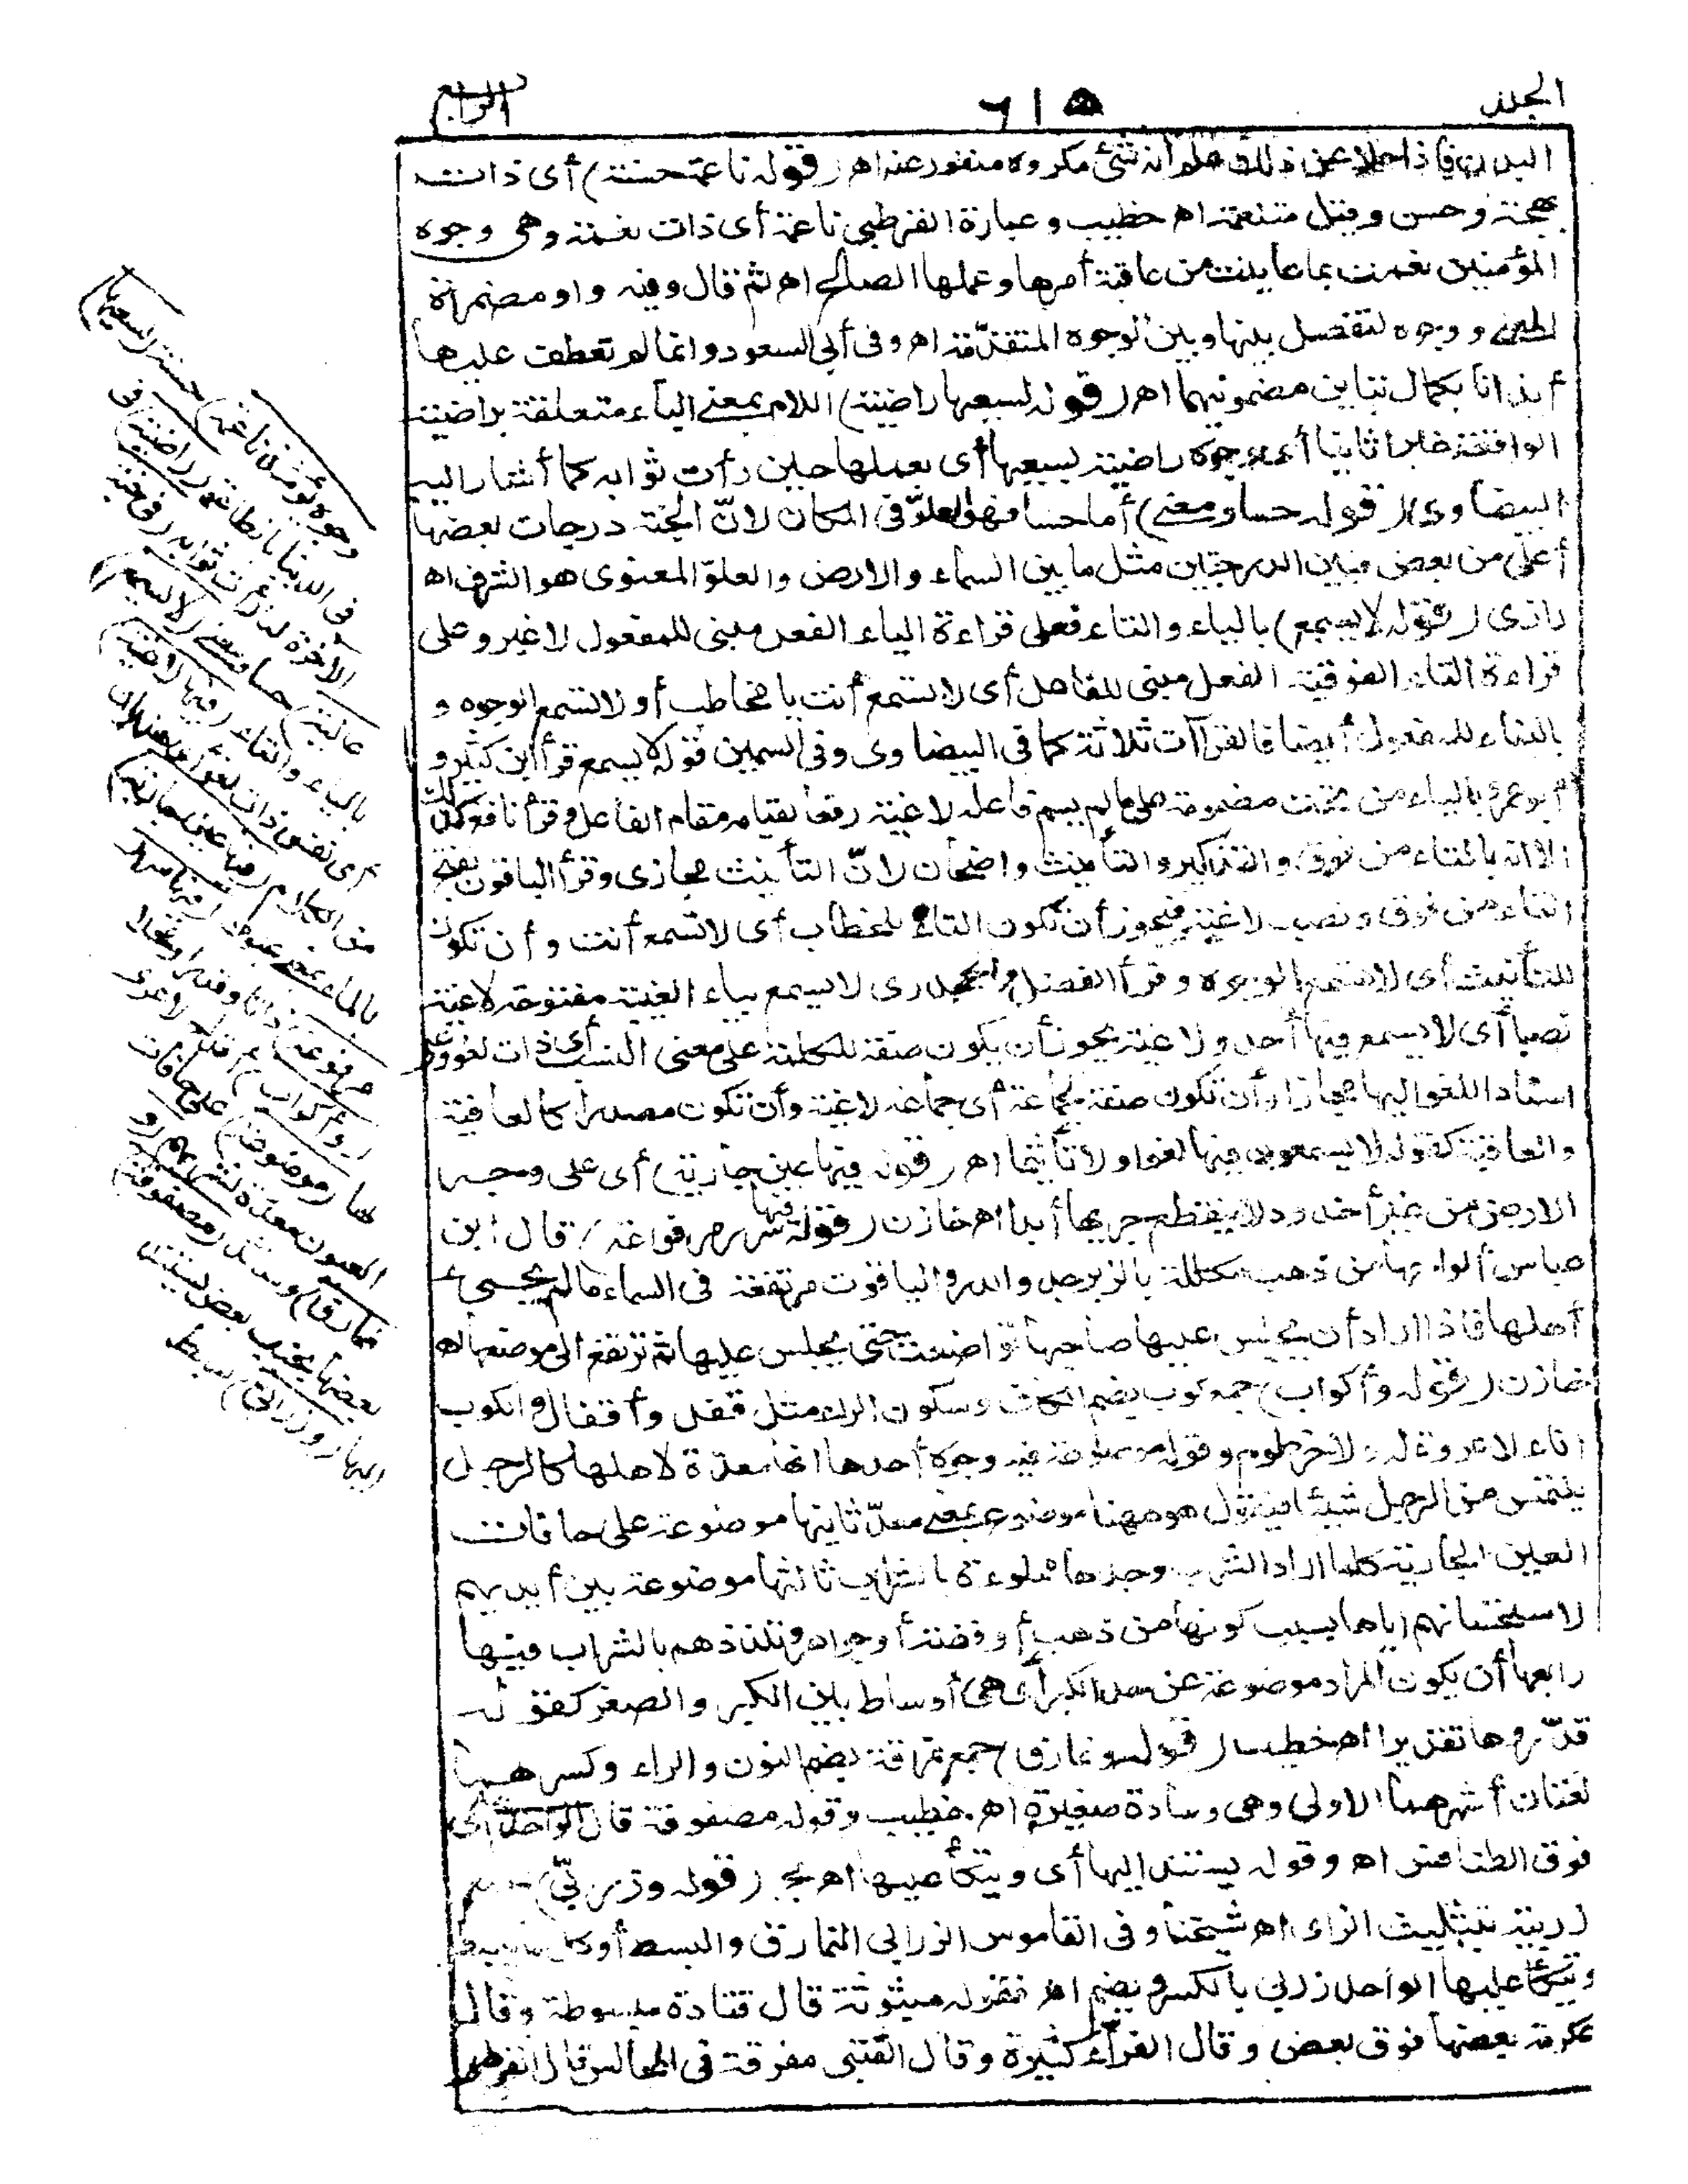 الجلد
٦١٥
الرابع
البدن فاذا خلا عن ذلك علم أنه شئ مكروه منفور عنه اه (قوله ناعمة حسنة) أى ذات
بهجة وحسن وقيل متنعمة اه خطيب وعبارة القرطبى ناعمة أى ذات نعمة وهى وجوه
المؤمنين نعمت بما عاينت من عاقبة أمرها وعملها الصالح اه ثم قال وفيه واو مضمرة
لمعنى ووجوه لتفصل بينها وبين الوجوه المتقدّمة اه وفى أبى السعود وانما لم تعطف عليها
ايذانا بكمال تباين مضمونيهما اه (قوله لسعيها راضية) اللام بمعنى الباء متعلقة براضية
الواقعة خبرا ثانيا أى وجوه راضية بسعيها أى بعملها حين رأت ثوابه كما أشار اليه
البيضاوى (قوله حسا ومعنى) أما حسا فهو العلوّ فى المكان لانّ الجنة درجات بعضها
أعلى من بعض فبين الدرجتين مثل ما بين السماء والارض والعلوّ المعنوى هو الشرف اه
رازى (قوله لا يسمع) بالياء والتاء فعلى قراءة الياء الفعل مبنى للمفعول لا غير وعلى
قراءة التاء الفوقية الفعل مبنى للفاعل أى لا تسمع أنت يا مخاطب أو لا تسمع الوجوه و
بالبناء للمفعول أيضا فالقرآات ثلاثة كما فى البيضاوى وفى السمين قوله لا يسمع قرأ ابن كثير و
أبو عمرو بالياء من تحت مضمومة على ما لم يسم فاعله لاغية رفعا لقيامه مقام الفاعل وقرأ نافع كذلك
الا انه بالتاء من فوق والتذكير والتأنيث واضحان لانّ التأنيث مجازى وقرأ الباقون بفتح
التاء من فوق ونصب لاغية فيجوز أن تكون التاء للخطاب أى لا تسمع أنت وأن تكون
للتأنيث أى لا تسمع الوجوه وقرأ الفضل والجحدرى لا يسمع بياء الغيبة مفتوحة لاغية
نصبا أى لا يسمع فيها أحد ولاغية يجوز أن يكون صفة للكلمة على معنى النسب أى ذات لغو و
اسناد اللغو اليها مجازا وأن تكون صفة لجماعة أى جماعة لاغية وأن تكون مصدرا كالعافية
والعاقبة كقوله لا يسمعون فيها لغوا ولا تأثيما اه (قوله فيها عين جارية) أى على وجه
الارض من غير أخدود لا ينقطع جريها أبدا اه خازن (قوله فيها سرر مرفوعة) قال ابن
عباس ألواحها من ذهب مكللة بالزبرجد والدر والياقوت مرتفعة فى السماء ما لم يجئ
أهلها فاذا اراد أن يجلس عليها صاحبها تواضعت حتى يجلس عليها ثم ترتفع الى موضعها اه
خازن (قوله وأكواب) جمع كوب بضم الكاف وسكون الراء مثل قفل وأقفال والكوب
اناء لا عروة له ولا خرطوم وقوله موضوعة فيه وجوه أحدها انها معدّة لاهلها كالرجل
يلتمس من الرجل شيئا فيقول هو مهنا موضوع بمعنى معدّ ثانيها موضوعة على حافات
العين الجارية كلما اراد الشرب وجدها مملوءة بالشراب ثالثها موضوعة بين أيديهم
لاستحسانهم اياها بسبب كونها من ذهب أو فضة أو جواهر وتلذذهم بالشراب فيها
رابعها أن يكون المراد موضوعة عن حد الكبر أى هى أوساط بين الكبر والصغر كقوله
قدّروها تقديرا اه خطيب (قوله ونمارق) جمع نمرقة بضم النون والراء وكسرهما
لغتان أشهرهما الاولى وهى وسادة صغيرة اه خطيب وقوله مصفوفة قال الواحدى أى
فوق الطنافس اه وقوله يستند اليها أى ويتكأ عليها اه (قوله وزرابىّ) جمع
زربية بتثليث الزاء اه شيخنا وفى القاموس الزرابى النمارق والبسط أو كل ما بسط
ويتكأ عليها الواحد زربى بالكسر ويضم اه فقوله مبثوثة قال قتادة مبسوطة وقال
عكرمة بعضها فوق بعض وقال الفرّاء كثيرة وقال القتبى مفرقة فى المجالس قال القرطبى
وجوه يومئذ ناعمة) حسنة (لسعيها)
فى الدنيا بالطاعة (راضية) فى
الآخرة لما رأت ثوابه (فى جنة
عالية) حسا ومعنى (لا يسمع)
بالياء والتاء (فيها لاغية)
أى نفس ذات لغو أى هذيان
من الكلام (فيها عين جارية)
بالماء بمعنى عيون (فيها سرر
مرفوعة) ذاتا وقدرا ومحلا
(وأكواب) أقداح لا عرى
لها (موضوعة) على حافات
العيون معدّة لشربهم (و
نمارق) وسائد (مصفوفة)
بعضها بجنب بعض يستند
اليها (وزرابى) بسط